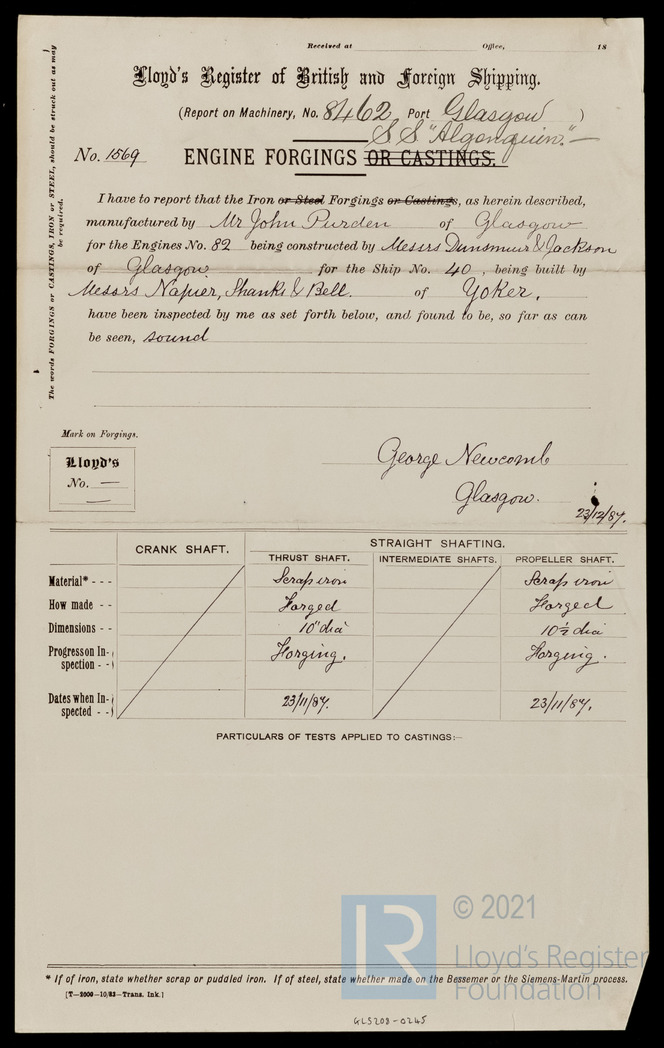 Received at Office, 18
Lloyd's Register of British and Foreign Shipping.
(Report on Machinery, No. 8462 Port Glasgow )
S S "Algonquin."—
No. 1569 ENGINE FORGINGS OR CASTINGS.
The words FORGINGS or CASTINGS, IRON or STEEL, should be struck out as may
be required.
I have to report that the Iron or Steel Forgings or Castings, as herein described,
manufactured by Mr John Purden of Glasgow
for the Engines No. 82 being constructed by Messrs Dunsmuir & Jackson
of Glasgow for the Ship No. 40, being built by
Messrs Napier, Shanks & Bell. of Yoker,
have been inspected by me as set forth below, and found to be, so far as can
be seen, sound
Mark on Forgings.
Lloyd's
No. —
—
George Newcomb
Glasgow.
23/12/87.
CRANK SHAFT. STRAIGHT SHAFTING.
THRUST SHAFT. INTERMEDIATE SHAFTS. PROPELLER SHAFT.
Material* - - - Scrap iron Scrap iron
How made - - Forged Forged
Dimensions - - 10" dia 10½ dia
Progress on In-
spection - - Forging. Forging.
Dates when In-
spected - - 23/11/87. 23/11/87.
PARTICULARS OF TESTS APPLIED TO CASTINGS:—
LR
© 2021
Lloyd's Register
Foundation
* If of iron, state whether scrap or puddled iron. If of steel, state whether made on the Bessemer or the Siemens-Martin process.
[T—2000—10/83—Trans. Ink.]
GLS208-0245